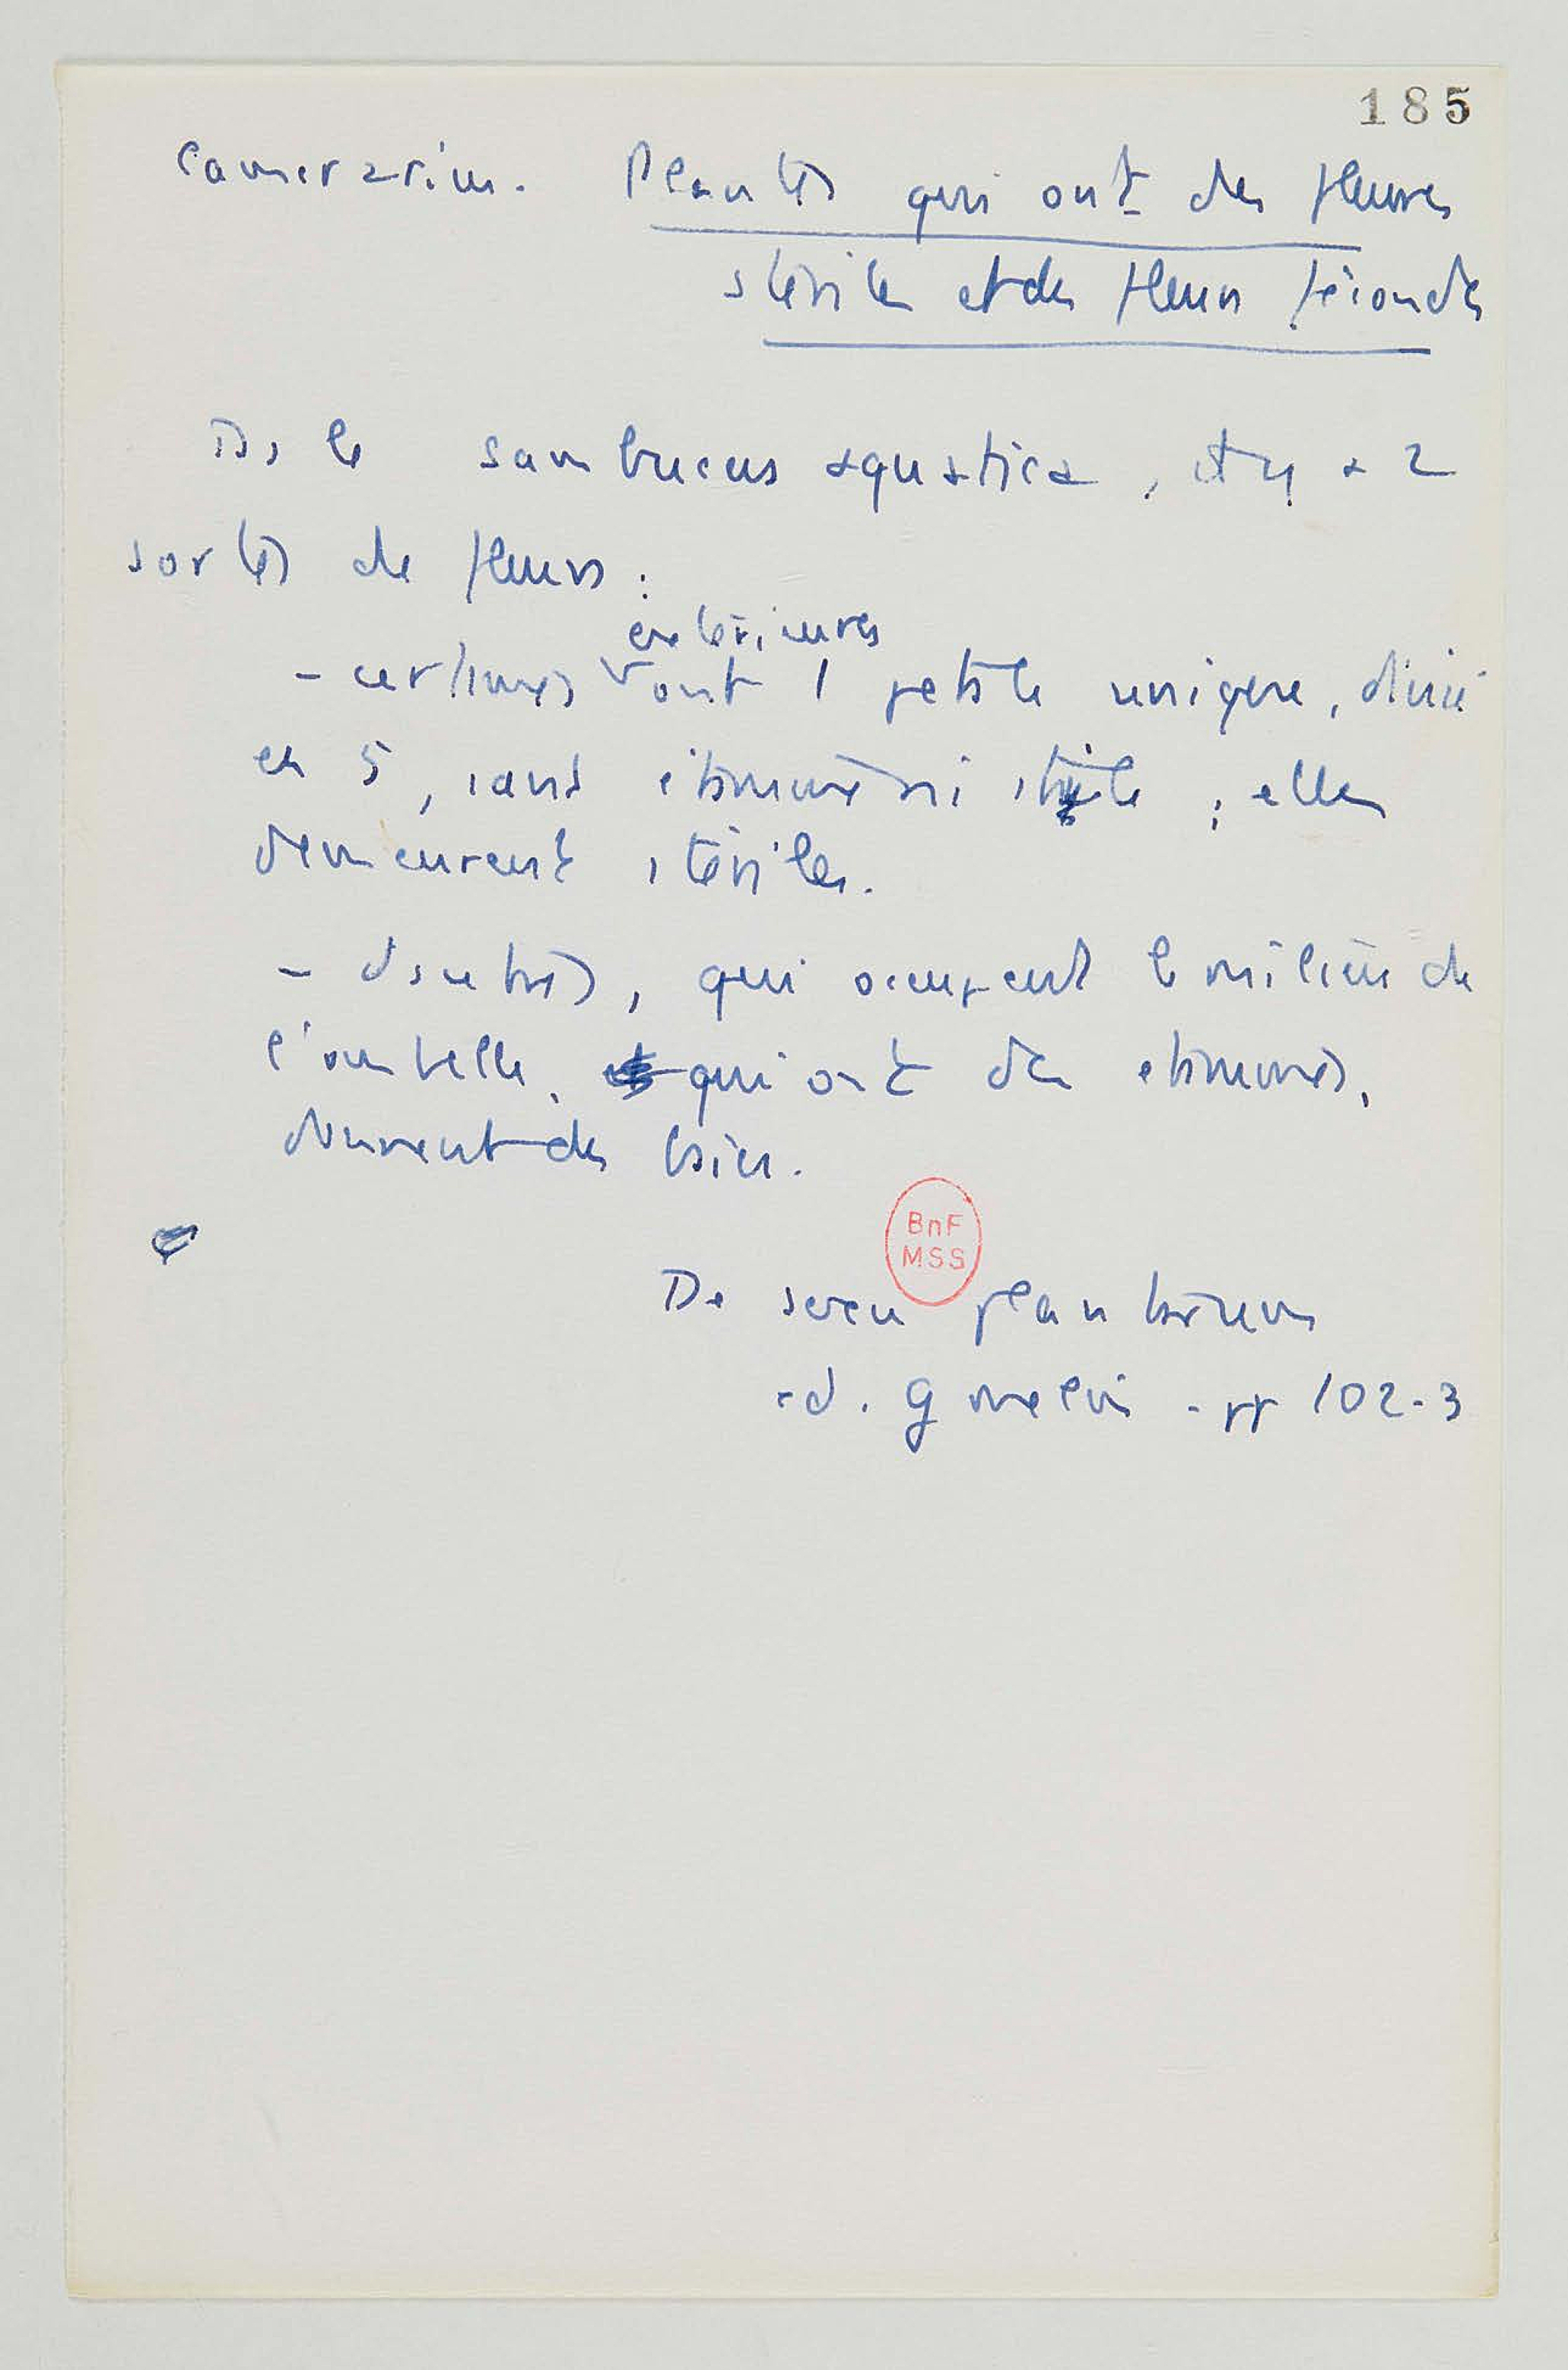 185
Camerarius. Plantes qui ont des fleurs
stériles et des fleurs fécondes
Ds le sambucus aquatica, il y a 2
sortes de fleurs :
extérieures
- certaines ont 1 pétale unique, divisé
en 5, sans étamine ni style ; elles
demeurent stériles.
- d'autres, qui occupent le milieu de
l'ombelle, qui ont des étamines,
donnent des baies.
BnF
MSS
De sexu plantarum
ed. Gmelin - pp 102-3